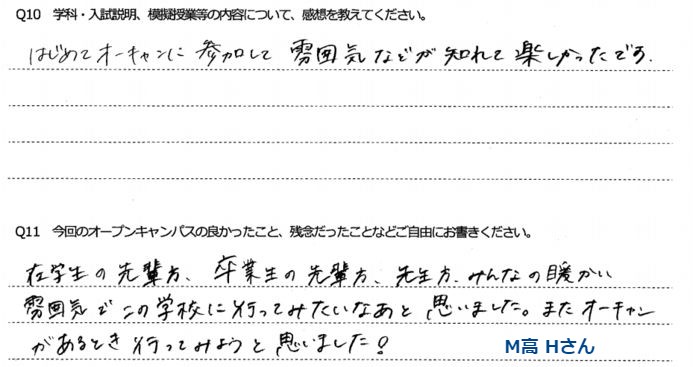 Q10 学科・入試説明、模擬授業等の内容について、感想を教えてください。
はじめてオーキャンに参加して雰囲気などが知れて楽しかったです.
Q11 今回のオープンキャンパスの良かったこと、残念だったことなどご自由にお書きください。
在学生の先輩方、卒業生の先輩方、先生方、みんなの暖かい
雰囲気でこの学校に行ってみたいなあと思いました。またオーキャン
があるとき行ってみようと思いました!
M高 Hさん